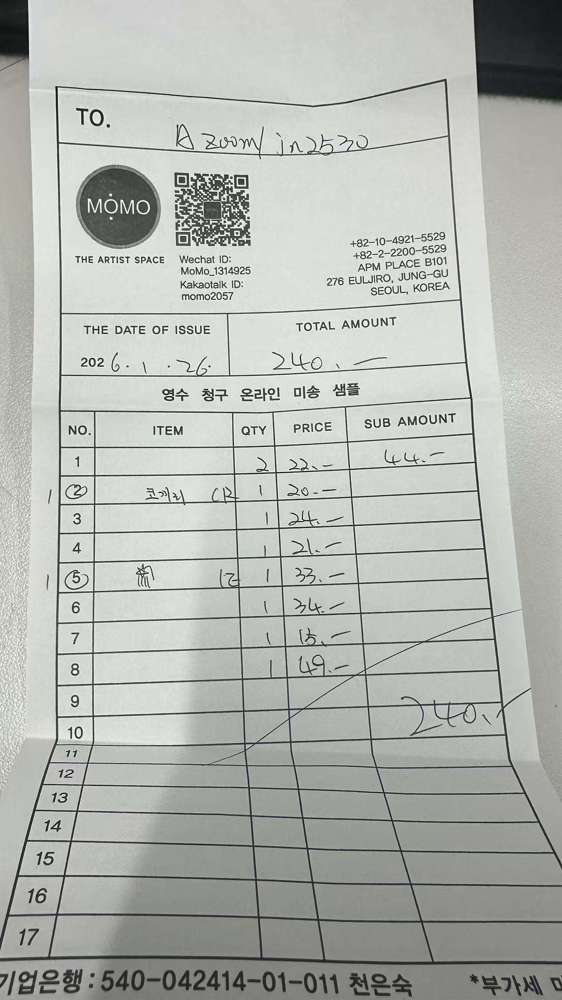 TO.
A zoom/in2530
MOMO
THE ARTIST SPACE
Wechat ID:
MoMo_1314925
Kakaotalk ID:
momo2057
+82-10-4921-5529
+82-2-2200-5529
APM PLACE B101
276 EULJIRO, JUNG-GU
SEOUL, KOREA
THE DATE OF ISSUE TOTAL AMOUNT
2026.1.26. 240.-
영수 청구 온라인 미송 샘플
NO. ITEM QTY PRICE SUB AMOUNT
1 2 22.- 44.-
1 2 코끼리 CR 1 20.-
3 1 24.-
4 1 21.-
1 5 1 33.-
6 1 34.-
7 1 15.-
8 1 49.-
9
10 240.-
11
12
13
14
15
16
17
기업은행 : 540-042414-01-011 천은숙 *부가세